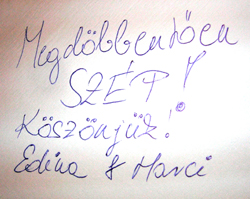 Megdöbbentően
SZÉP!
Köszönjük!
Edina & Marci